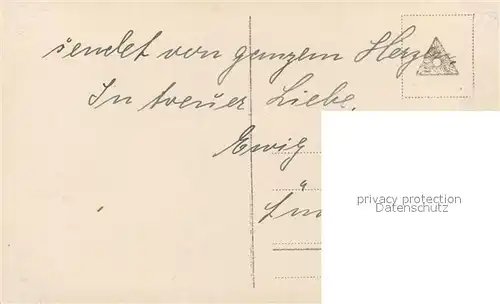 sendet von ganzem Herzen.
In treuer Liebe.
Ewig
privacy protection
Datenschutz